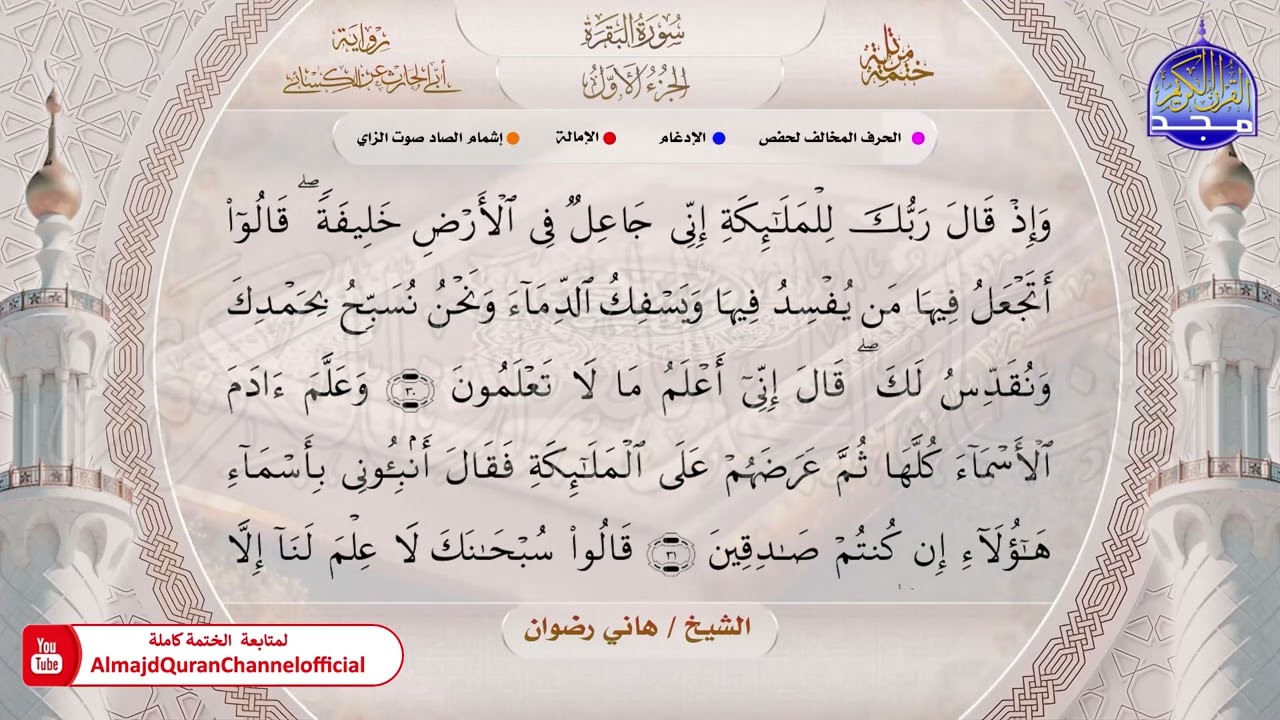 ختمة مرتلة
سُورَةُ البَقَرَة
الجُزْءُ الأَوَّلُ
رواية
أبي الحارث عن الكسائي
القرآن الكريم
مجد
الحرف المخالف لحفص
الإدغام
الإمالة
إشمام الصاد صوت الزاي
وَإِذۡ قَالَ رَبُّكَ لِلۡمَلَٰٓئِكَةِ إِنِّي جَاعِلٞ فِي ٱلۡأَرۡضِ خَلِيفَةٗۖ قَالُوٓاْ
أَتَجۡعَلُ فِيهَا مَن يُفۡسِدُ فِيهَا وَيَسۡفِكُ ٱلدِّمَآءَ وَنَحۡنُ نُسَبِّحُ بِحَمۡدِكَ
وَنُقَدِّسُ لَكَۖ قَالَ إِنِّيٓ أَعۡلَمُ مَا لَا تَعۡلَمُونَ ٣٠ وَعَلَّمَ ءَادَمَ
ٱلۡأَسۡمَآءَ كُلَّهَا ثُمَّ عَرَضَهُمۡ عَلَى ٱلۡمَلَٰٓئِكَةِ فَقَالَ أَنۢبِـُٔونِي بِأَسۡمَآءِ
هَٰٓؤُلَآءِ إِن كُنتُمۡ صَٰدِقِينَ ٣١ قَالُواْ سُبۡحَٰنَكَ لَا عِلۡمَ لَنَآ إِلَّا
الشيخ / هاني رضوان
You
Tube
لمتابعة الختمة كاملة
AlmajdQuranChannelofficial